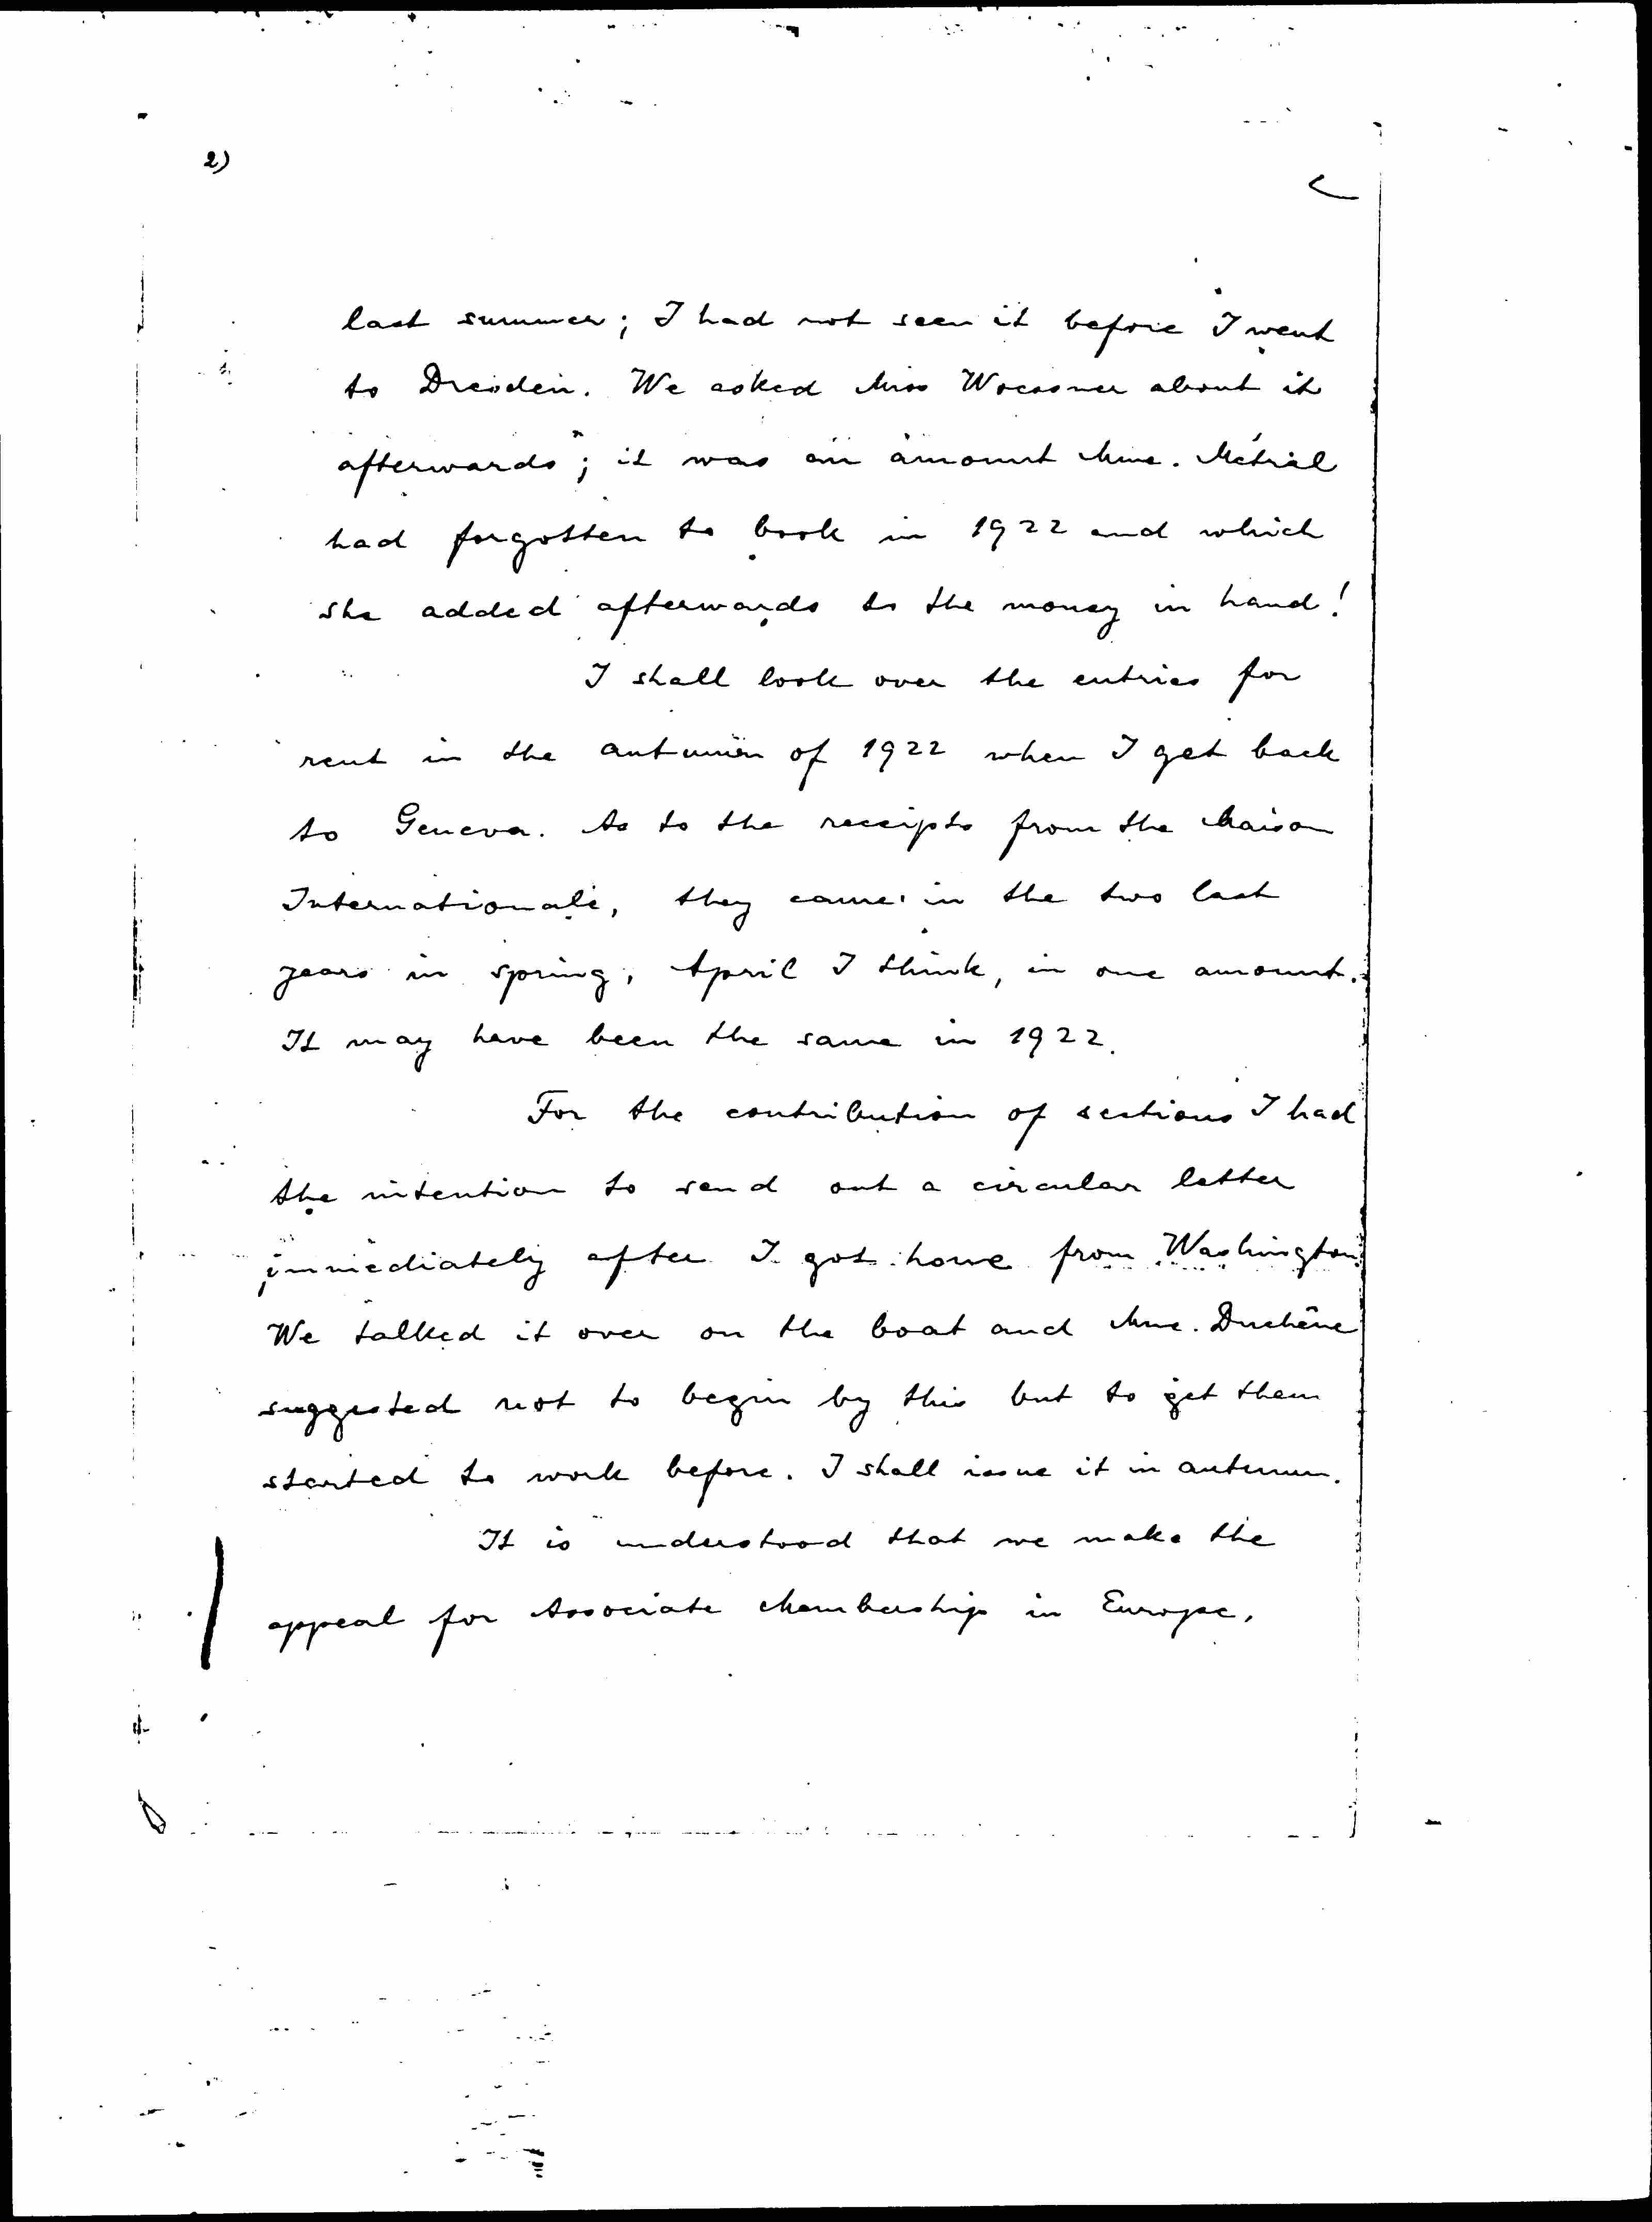 2)
last summer; I had not seen it before I went
to Dresden. We asked Miss Woessner about it
afterwards; it was an amount Mme. Métrial
had forgotten to book in 1922 and which
she added afterwards to the money in hand!
I shall look over the entries for
rent in the autumn of 1922 when I get back
to Geneva. As to the receipts from the Maison
Internationale, they came in the two last
years in spring, April I think, in one amount.
It may have been the same in 1922.
For the contribution of sections I had
the intention to send out a circular letter
immediately after I got home from Washington.
We talked it over on the boat and Mme. Duchêne
suggested not to begin by this but to get them
started to work before. I shall issue it in autumn.
It is understood that we make the
appeal for Associate Membership in Europe,